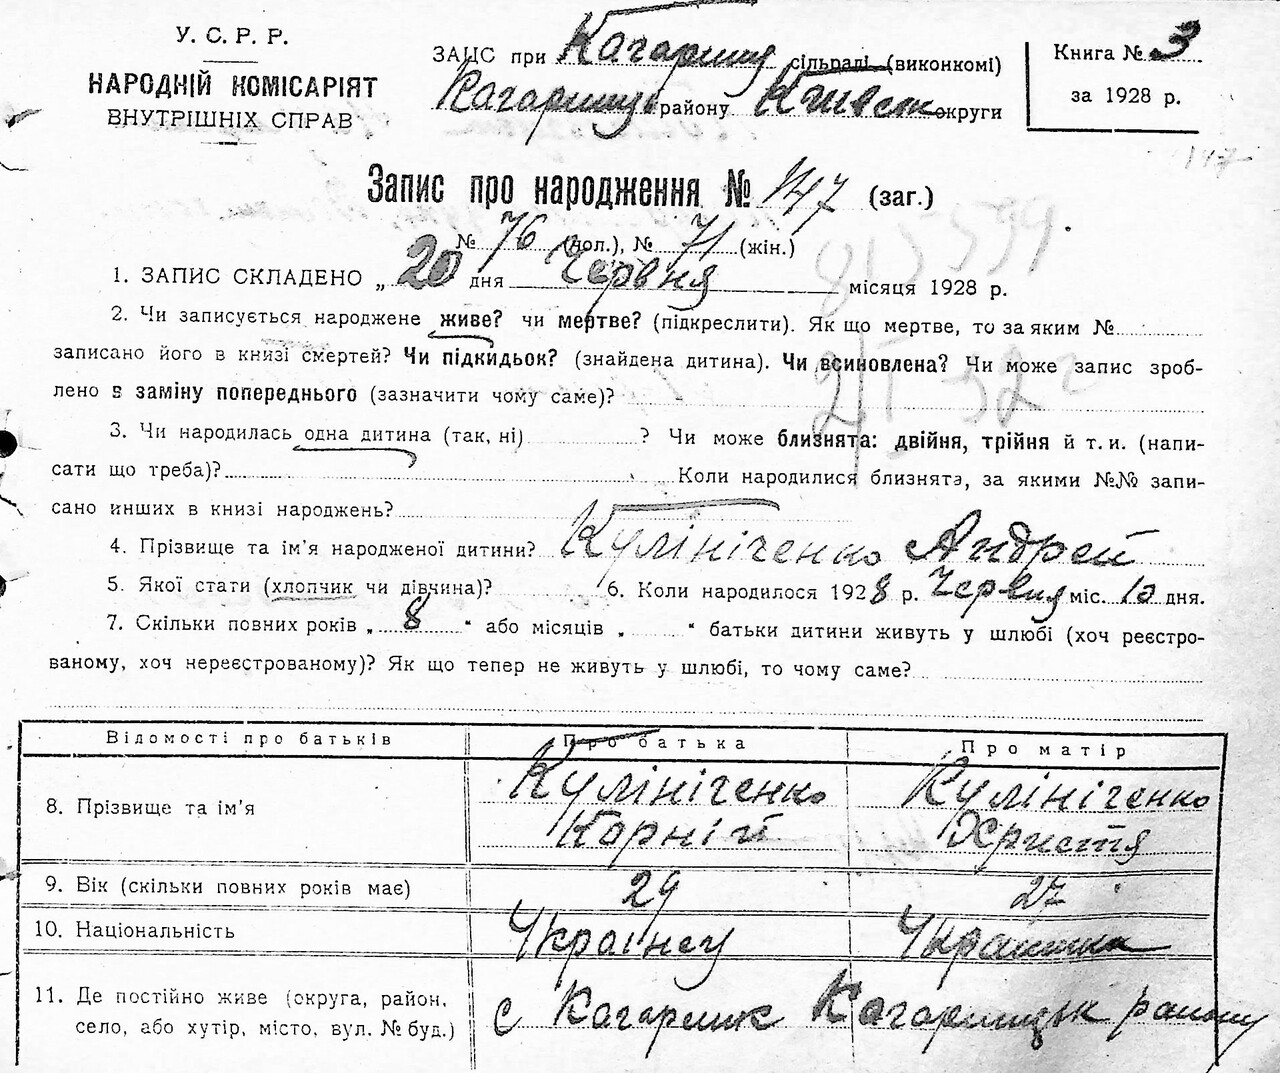 У. С. Р. Р.
НАРОДНІЙ КОМІСАРІЯТ
ВНУТРІШНІХ СПРАВ
ЗАЦС при Кагарлиц сільраді (виконкомі)
Кагарлицьк району Київськ округи
Книга № 3
за 1928 р.
147
Запис про народження № 147 (заг.)
№ 76 (чол.), № 71 (жін.)
1. ЗАПИС СКЛАДЕНО „ 20 дня Червня місяця 1928 р.
2. Чи записується народжене живе? чи мертве? (підкреслити). Як що мертве, то за яким №
записано його в книзі смертей? Чи підкидьок? (знайдена дитина). Чи всиновлена? Чи може запис зроб-
лено в заміну попереднього (зазначити чому саме)?
3. Чи народилась одна дитина (так, ні) ? Чи може близнята: двійня, трійня й т. и. (напи-
сати що треба)? Коли народилися близнята, за якими №№ запи-
сано инших в книзі народжень?
4. Прізвище та ім’я народженої дитини? Кулініченко Андрей
5. Якої стати (хлопчик чи дівчина)? 6. Коли народилося 1928 р. Червня міс. 10 дня.
7. Скільки повних років „ 8 “ або місяців „ “ батьки дитини живуть у шлюбі (хоч реєстро-
ваному, хоч нереєстрованому)? Як що тепер не живуть у шлюбі, то чому саме?
Відомості про батьків Про батька Про матір
8. Прізвище та ім’я Кулініченко Корній Кулініченко Христя
9. Вік (скільки повних років має) 29 27
10. Національність Українец Українка
11. Де постійно живе (округа, район,
село, або хутір, місто, вул. № буд.) с Кагарлик Кагарлицьк району